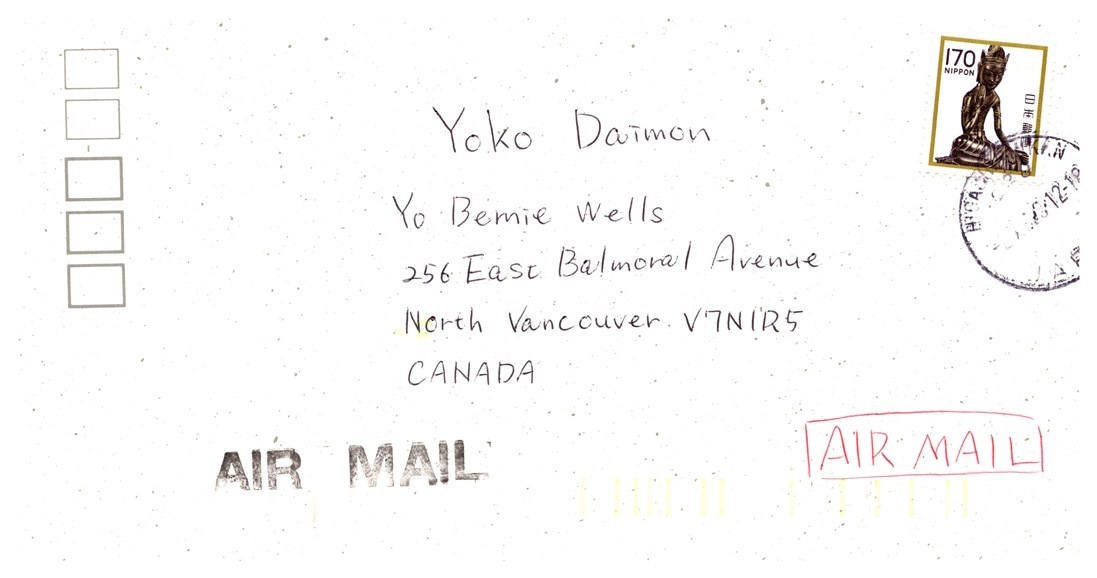 170
NIPPON
日本郵便
Yoko Daimon
Yo Bernie Wells
256 East Balmoral Avenue
North Vancouver. V7N1R5
CANADA
AIR MAIL
AIR MAIL